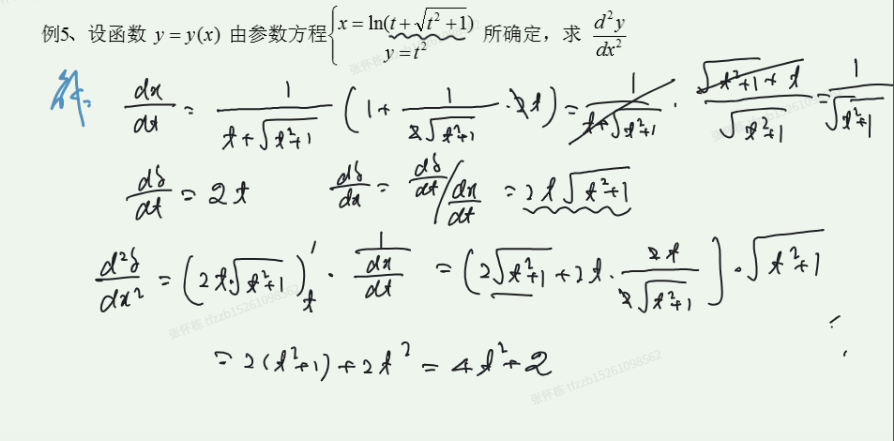 例5、设函数 y = y(x) 由参数方程 { x = ln(t + √(t² + 1)) y = t² 所确定，求 d²y/dx²
解. dx/dt = 1/(t+√(t²+1)) (1 + 1/(2√(t²+1)) · 2t) = 1/(t+√(t²+1)) · (√(t²+1) + t)/√(t²+1) = 1/√(t²+1)
dy/dt = 2t dy/dx = dy/dt / dx/dt = 2t√(t²+1)
d²y/dx² = (2t·√(t²+1))'ₜ · 1/(dx/dt) = (2√(t²+1) + 2t · 2t/(2√(t²+1))] · √(t²+1)
= 2(t²+1) + 2t² = 4t² + 2
张怀栋 rlzzb15261098562
张怀栋 rlzzb15261098562